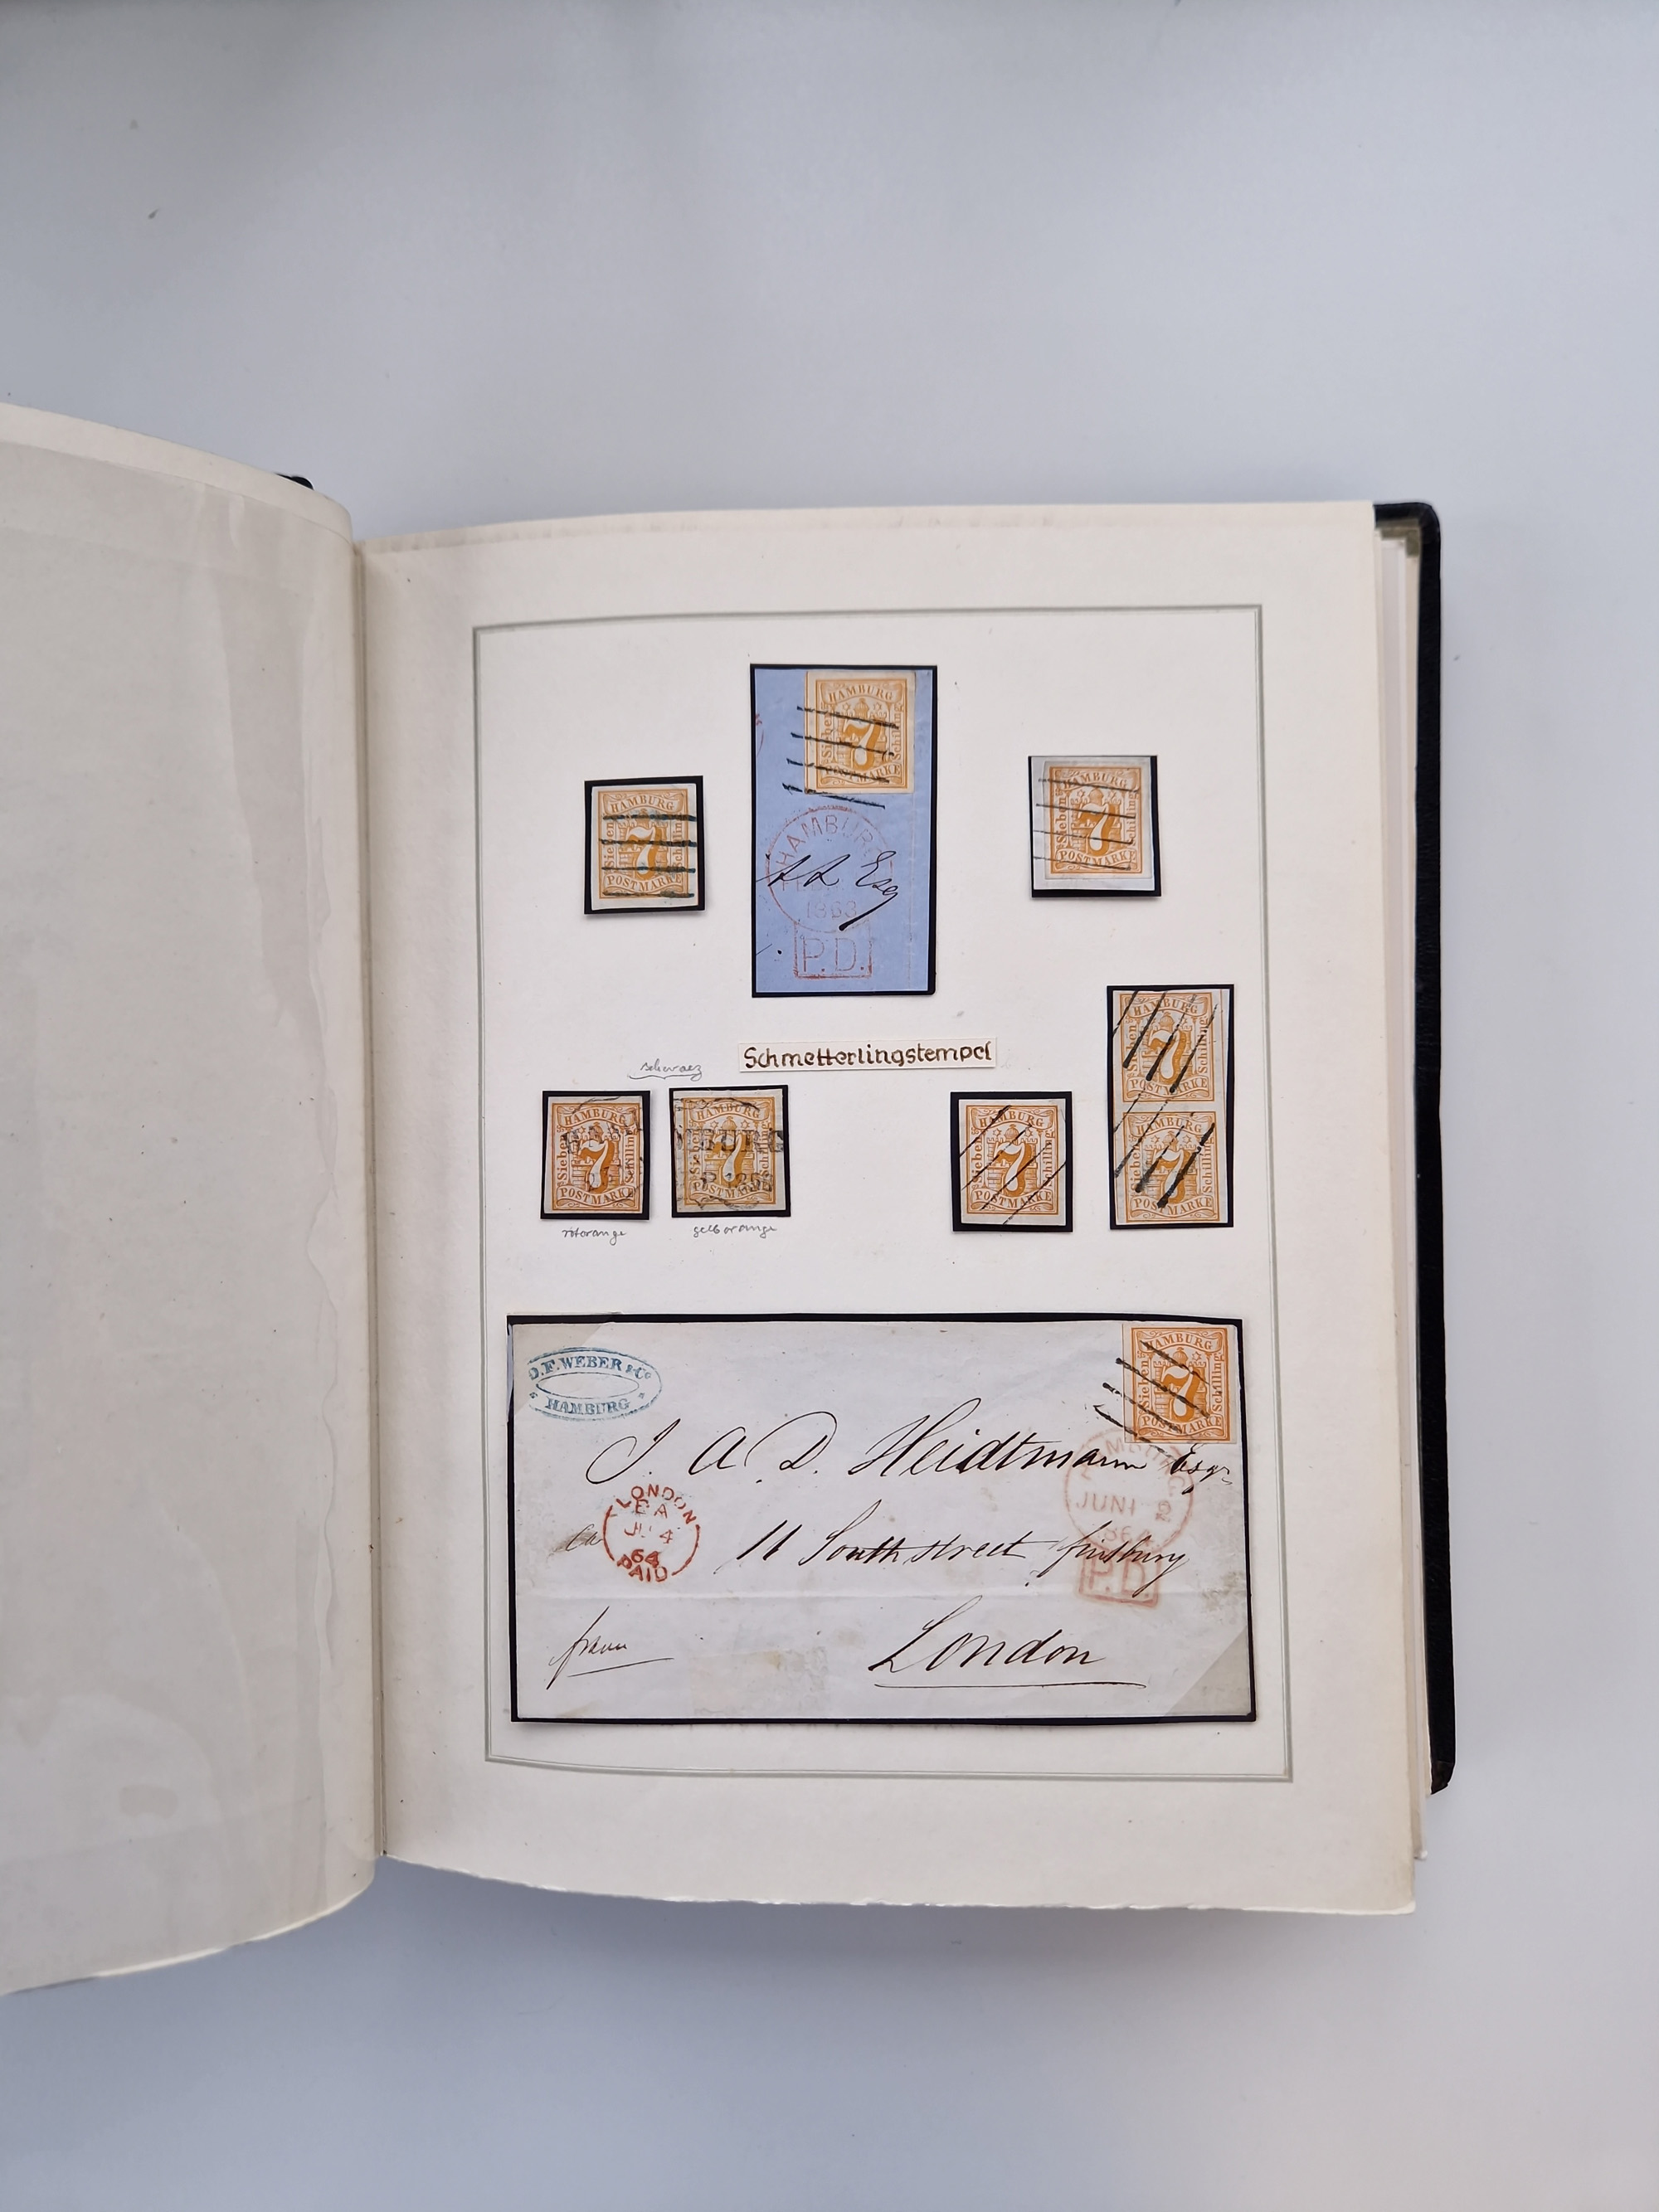 HAMBURG
Sieben
7
Schilling
POSTMARKE
HAMBURG
Sieben
7
Schilling
POSTMARKE
HAMBURG
Esq
1863
P.D.
HAMBURG
Sieben
7
Schilling
POSTMARKE
Schmetterlingstempel
schwarz
HAMBURG
Sieben
7
Schilling
POSTMARKE
rotorange
HAMBURG
7
POSTMARKE
gelborange
HAMBURG
Sieben
7
Schilling
POSTMARKE
HAMBURG
Sieben
7
Schilling
POSTMARKE
HAMBURG
Sieben
7
Schilling
POSTMARKE
D.F. WEBER & Co
HAMBURG
HAMBURG
Sieben
7
Schilling
POSTMARKE
J. A. D. Heidtmann Esqr
LONDON
JU 4
64
PAID
JUNI 2
P.D.
11 South street finsbury
London